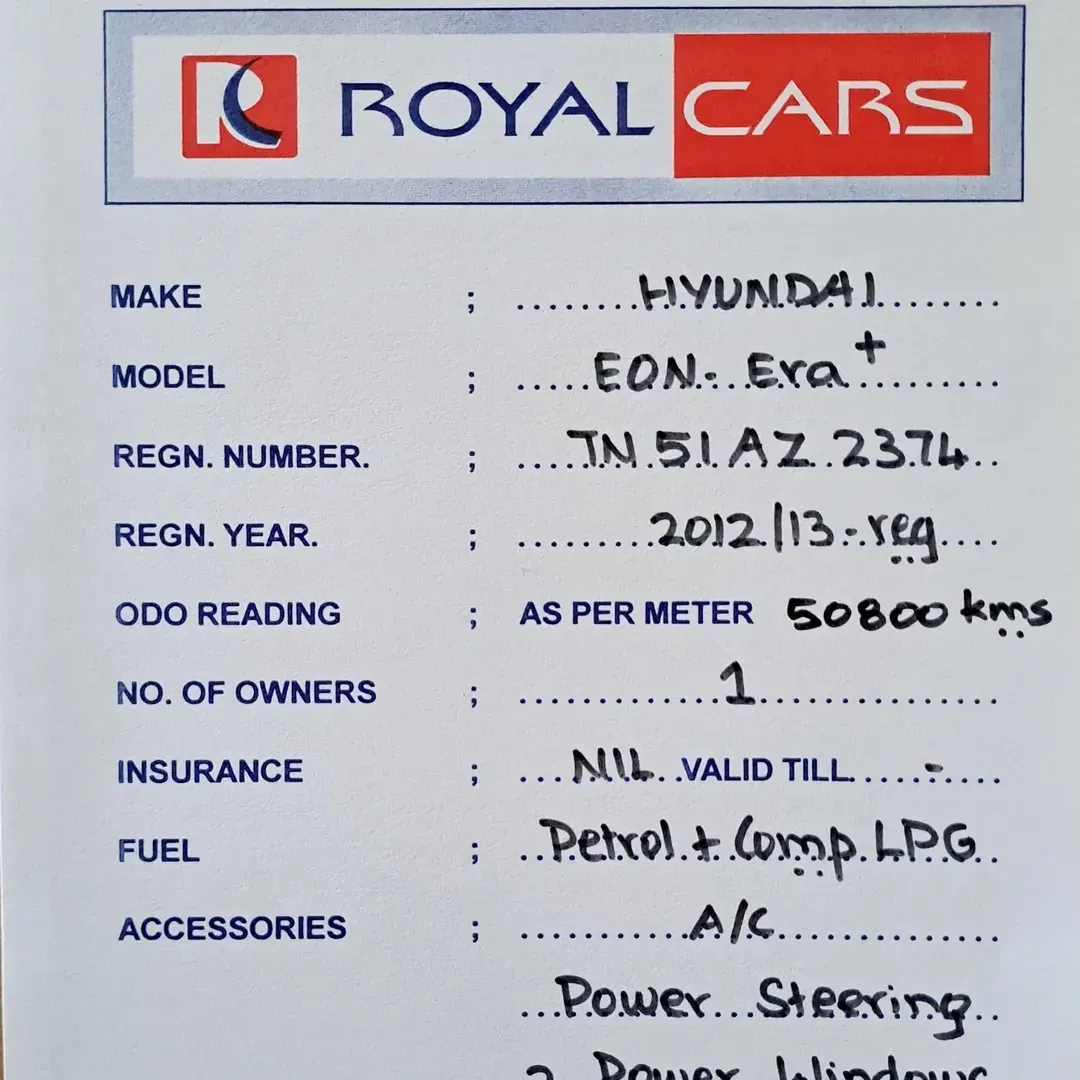 R ROYAL CARS
MAKE ; HYUNDAI
MODEL ; EON- Era+
REGN. NUMBER. ; TN 51 AZ 2374
REGN. YEAR. ; 2012/13-reg
ODO READING ; AS PER METER 50800 kms
NO. OF OWNERS ; 1
INSURANCE ; NIL VALID TILL -
FUEL ; Petrol + Comp LPG
ACCESSORIES ; A/C
Power Steering
2 Power Windows